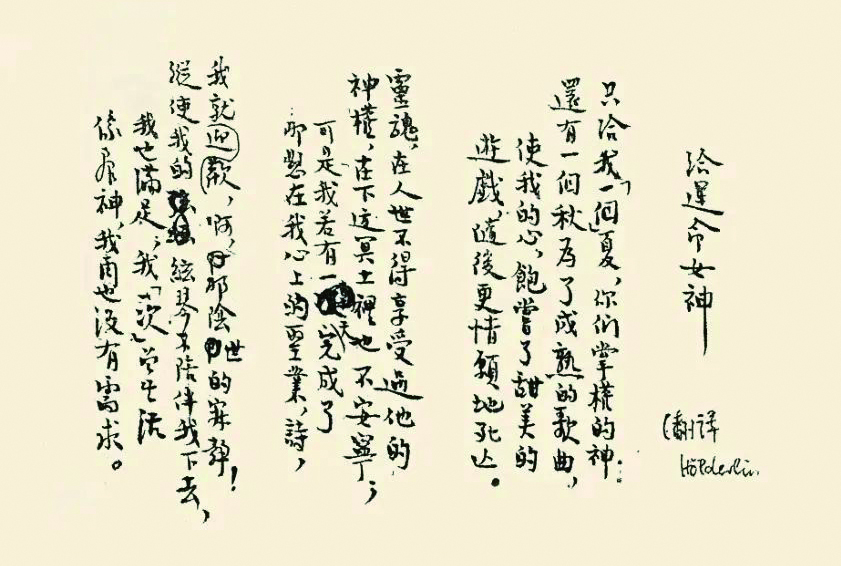 給運命女神
(翻譯
Hölderlin.
只給我「一個」夏，你们掌權的神：
還有一個秋為了成熟的歌曲，
使我的心，飽嘗了甜美的
遊戲，隨後更情願地死亡。
靈魂，在人世不得享受過他的
神權，在下这冥土裡也不安寧；
可是我若有一天完成了
那懸在我心上的聖業，詩，
我就迎歡，啊，那陰世的寂靜！
縱使我的絃琴不陪伴我下去，
我也滿足，我「一次」曾生活
像眾神，我再也沒有需求。